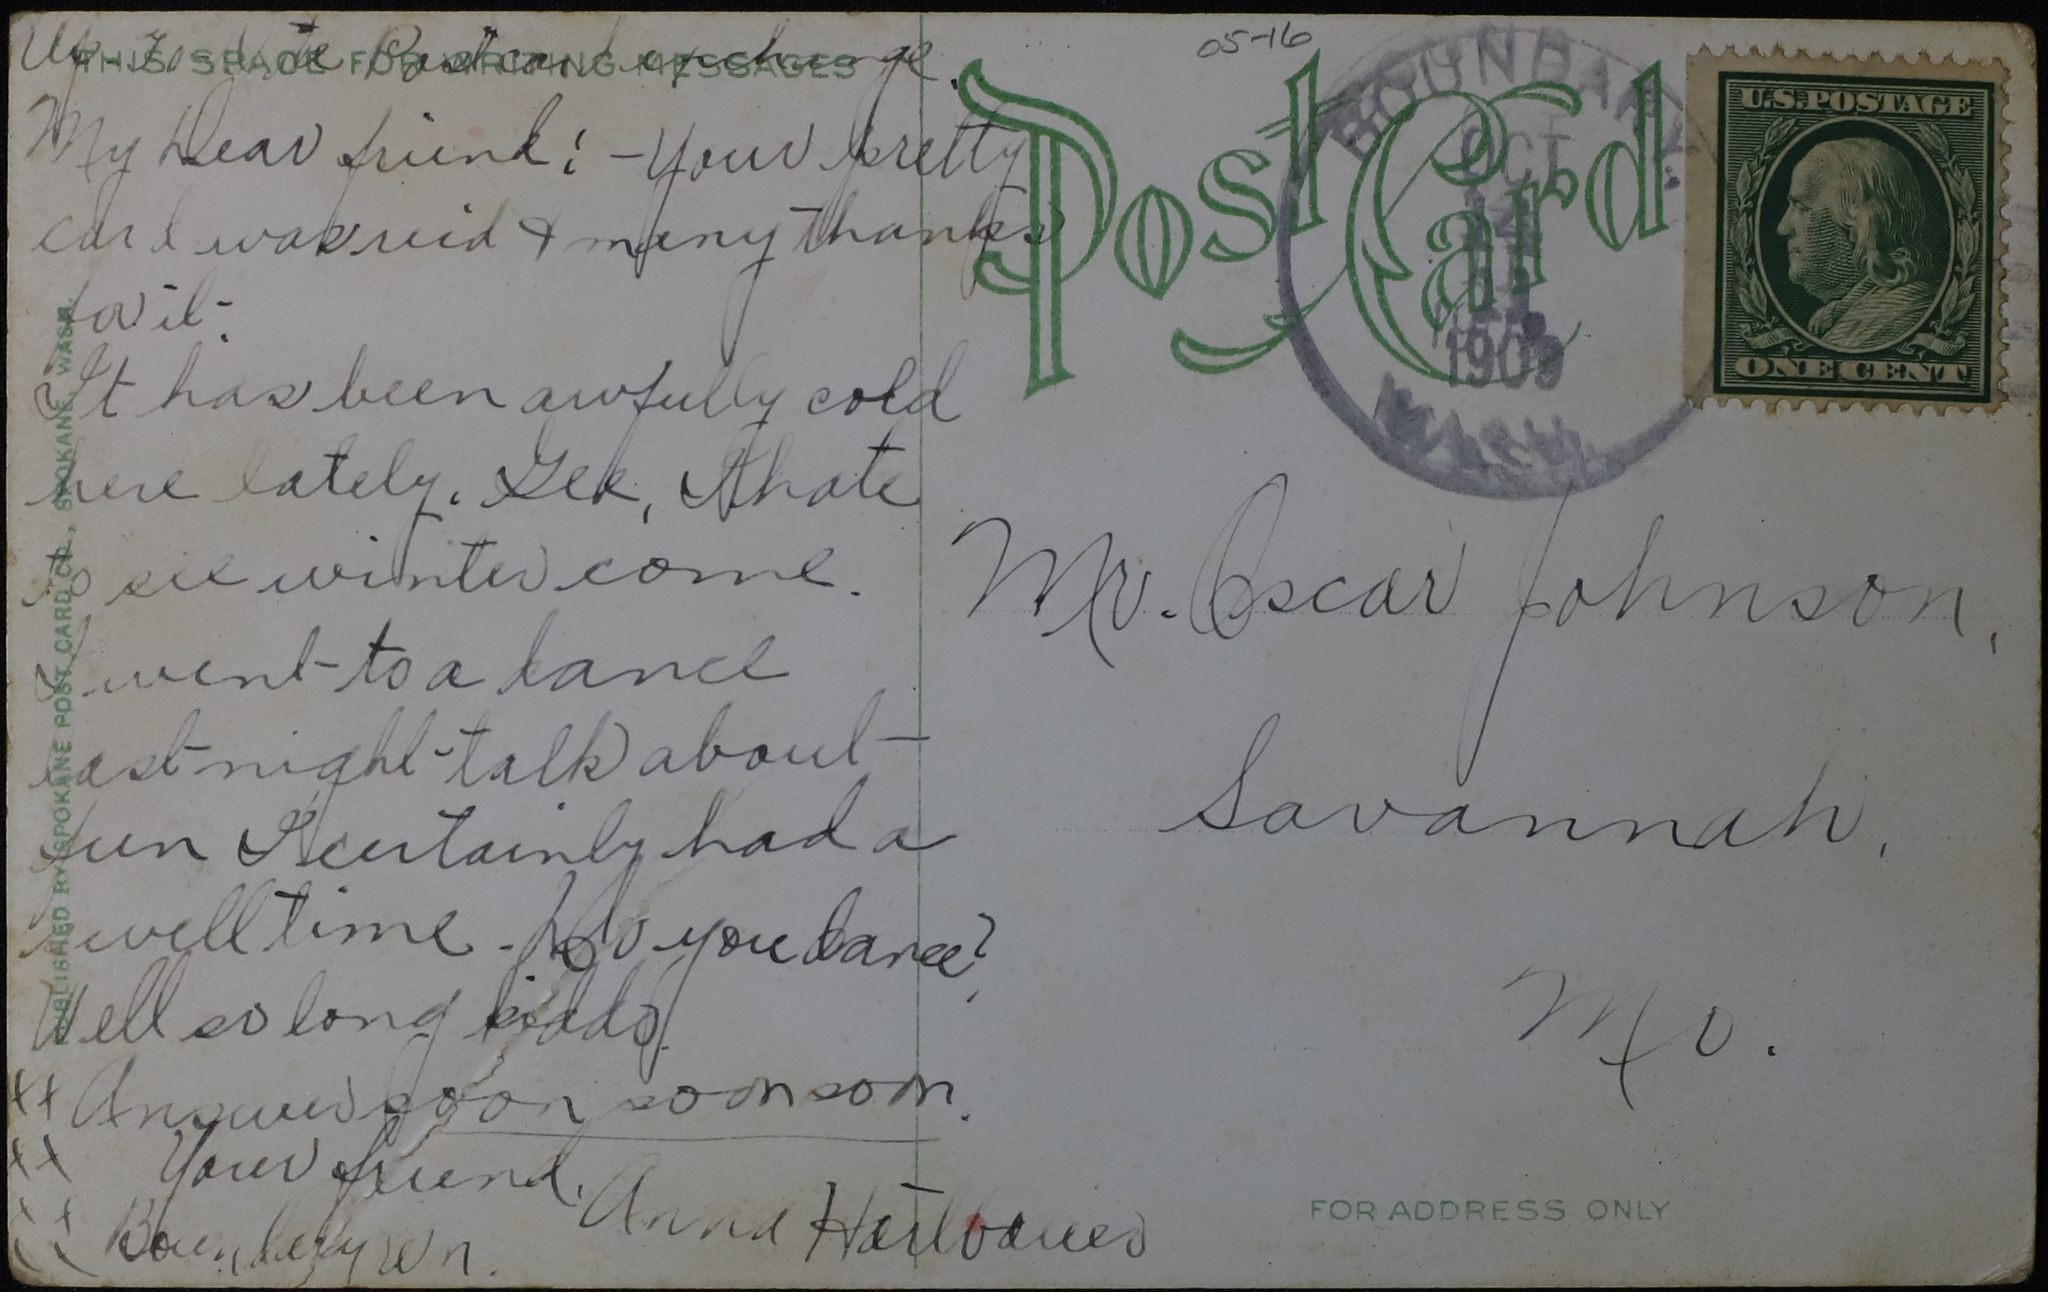 Up to date Post card exchange.
THIS SPACE FOR WRITING MESSAGES
My Dear friend: - Your pretty
card was reid & many thanks
for it.
It has been awfully cold
here lately. Gee, I hate
to see winter come.
I went to a dance
last night - talk about
fun I certainly had a
swell time. Do you dance?
Well so long kiddo.
Answer soon soon soon.
Your friend,
Anna
Boundary Wn.
xx
xx
xx
PUBLISHED BY SPOKANE POST CARD CO., SPOKANE, WASH.
05-16
Post Card
BOUNDARY
OCT
12
1909
WASH.
U.S. POSTAGE
ONE CENT
Mr. Oscar Johnson,
Savannah,
Mo.
FOR ADDRESS ONLY